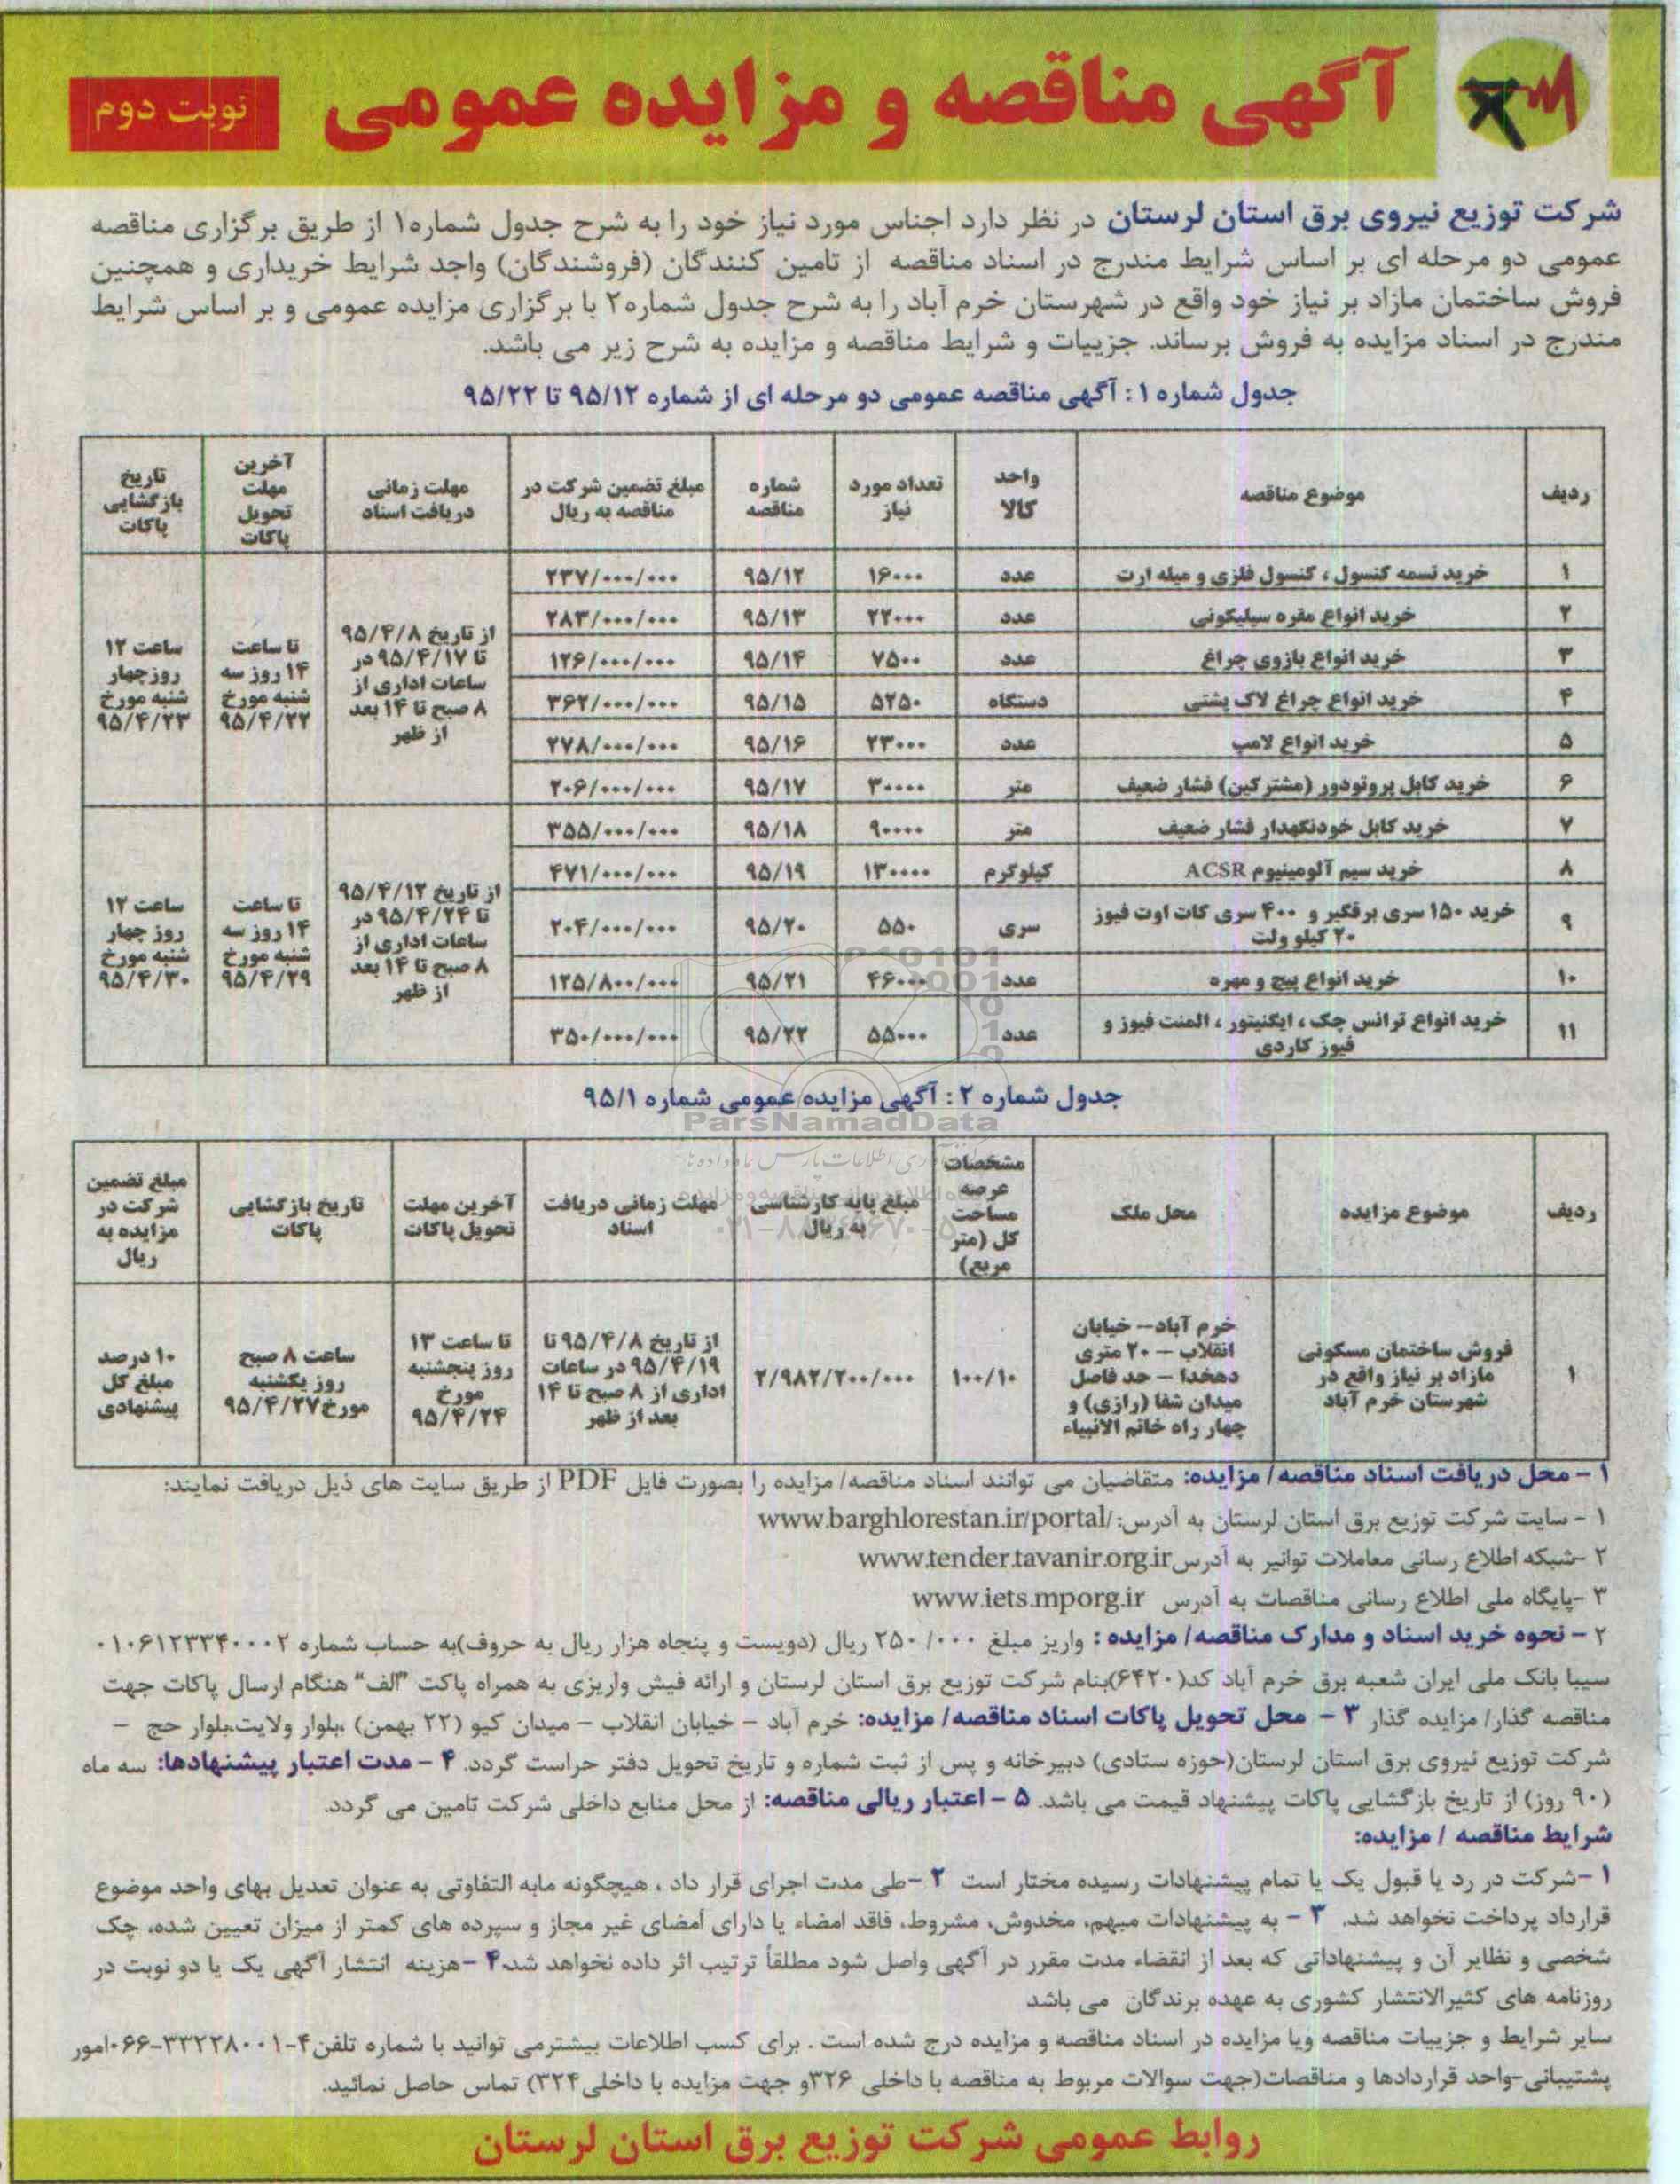 آگهی مناقصه و مزایده عمومی
نوبت دوم
شرکت توزیع نیروی برق استان لرستان در نظر دارد اجناس مورد نیاز خود را به شرح جدول شماره۱ از طریق برگزاری مناقصه
عمومی دو مرحله ای بر اساس شرایط مندرج در اسناد مناقصه از تامین کنندگان (فروشندگان) واجد شرایط خریداری و همچنین
فروش ساختمان مازاد بر نیاز خود واقع در شهرستان خرم آباد را به شرح جدول شماره۲ با برگزاری مزایده عمومی و بر اساس شرایط
مندرج در اسناد مزایده به فروش برساند. جزییات و شرایط مناقصه و مزایده به شرح زیر می باشد.
جدول شماره ۱ : آگهی مناقصه عمومی دو مرحله ای از شماره ۹۵/۱۲ تا ۹۵/۲۲
ردیف | موضوع مناقصه | واحد کالا | تعداد مورد نیاز | شماره مناقصه | مبلغ تضمین شرکت در مناقصه به ریال | مهلت زمانی دریافت اسناد | آخرین مهلت تحویل پاکات | تاریخ بازگشایی پاکات
۱ | خرید تسمه کنسول ، کنسول فلزی و میله ارت | عدد | ۱۶۰۰۰ | ۹۵/۱۲ | ۲۳۷/۰۰۰/۰۰۰
۲ | خرید انواع مقره سیلیکونی | عدد | ۲۲۰۰۰ | ۹۵/۱۳ | ۲۸۳/۰۰۰/۰۰۰
۳ | خرید انواع بازوی چراغ | عدد | ۷۵۰۰ | ۹۵/۱۴ | ۱۲۶/۰۰۰/۰۰۰
۴ | خرید انواع چراغ لاک پشتی | دستگاه | ۵۲۵۰ | ۹۵/۱۵ | ۳۶۲/۰۰۰/۰۰۰
۵ | خرید انواع لامپ | عدد | ۲۳۰۰۰ | ۹۵/۱۶ | ۲۷۸/۰۰۰/۰۰۰
۶ | خرید کابل پروتودور (مشترکین) فشار ضعیف | متر | ۳۰۰۰۰ | ۹۵/۱۷ | ۲۰۶/۰۰۰/۰۰۰
از تاریخ ۹۵/۴/۸ تا ۹۵/۴/۱۷ در ساعات اداری از ۸ صبح تا ۱۴ بعد از ظهر | تا ساعت ۱۴ روز سه شنبه مورخ ۹۵/۴/۲۲ | ساعت ۱۲ روزچهار شنبه مورخ ۹۵/۴/۲۳
۷ | خرید کابل خودنگهدار فشار ضعیف | متر | ۹۰۰۰۰ | ۹۵/۱۸ | ۳۵۵/۰۰۰/۰۰۰
۸ | خرید سیم آلومینیوم ACSR | کیلوگرم | ۱۳۰۰۰۰ | ۹۵/۱۹ | ۴۷۱/۰۰۰/۰۰۰
۹ | خرید ۱۵۰ سری برقگیر و ۴۰۰ سری کات اوت فیوز ۲۰ کیلو ولت | سری | ۵۵۰ | ۹۵/۲۰ | ۲۰۴/۰۰۰/۰۰۰
۱۰ | خرید انواع پیچ و مهره | عدد | ۴۶۰۰۰ | ۹۵/۲۱ | ۱۲۵/۸۰۰/۰۰۰
۱۱ | خرید انواع ترانس چک ، ایگنیتور ، المنت فیوز و فیوز کاردی | عدد | ۵۵۰۰۰ | ۹۵/۲۲ | ۳۵۰/۰۰۰/۰۰۰
از تاریخ ۹۵/۴/۱۲ تا ۹۵/۴/۲۴ در ساعات اداری از ۸ صبح تا ۱۴ بعد از ظهر | تا ساعت ۱۴ روز سه شنبه مورخ ۹۵/۴/۲۹ | ساعت ۱۲ روز چهار شنبه مورخ ۹۵/۴/۳۰
جدول شماره ۲ : آگهی مزایده عمومی شماره ۹۵/۱
ParsNamadData
ردیف | موضوع مزایده | محل ملک | مشخصات عرصه مساحت کل (متر مربع) | مبلغ پایه کارشناسی به ریال | مهلت زمانی دریافت اسناد | آخرین مهلت تحویل پاکات | تاریخ بازگشایی پاکات | مبلغ تضمین شرکت در مزایده به ریال
۱ | فروش ساختمان مسکونی مازاد بر نیاز واقع در شهرستان خرم آباد | خرم آباد– خیابان انقلاب – ۲۰ متری دهخدا – حد فاصل میدان شفا (رازی) و چهار راه خاتم الانبیاء | ۱۰۰/۱۰ | ۲/۹۸۲/۲۰۰/۰۰۰ | از تاریخ ۹۵/۴/۸ تا ۹۵/۴/۱۹ در ساعات اداری از ۸ صبح تا ۱۴ بعد از ظهر | تا ساعت ۱۳ روز پنجشنبه مورخ ۹۵/۴/۲۴ | ساعت ۸ صبح روز یکشنبه مورخ۹۵/۴/۲۷ | ۱۰ درصد مبلغ کل پیشنهادی
۱ – محل دریافت اسناد مناقصه/ مزایده: متقاضیان می توانند اسناد مناقصه/ مزایده را بصورت فایل PDF از طریق سایت های ذیل دریافت نمایند:
۱ - سایت شرکت توزیع برق استان لرستان به آدرس: www.barghlorestan.ir/portal/
۲ -شبکه اطلاع رسانی معاملات توانیر به آدرس www.tender.tavanir.org.ir
۳ -پایگاه ملی اطلاع رسانی مناقصات به آدرس www.iets.mporg.ir
۲ – نحوه خرید اسناد و مدارک مناقصه/ مزایده : واریز مبلغ ۲۵۰/۰۰۰ ریال (دویست و پنجاه هزار ریال به حروف)به حساب شماره ۰۱۰۶۱۲۳۳۴۰۰۰۲
سیبا بانک ملی ایران شعبه برق خرم آباد کد(۶۴۲۰)بنام شرکت توزیع برق استان لرستان و ارائه فیش واریزی به همراه پاکت "الف" هنگام ارسال پاکات جهت
مناقصه گذار/ مزایده گذار ۳ – محل تحویل پاکات اسناد مناقصه/ مزایده: خرم آباد – خیابان انقلاب – میدان کیو (۲۲ بهمن) ،بلوار ولایت،بلوار حج –
شرکت توزیع نیروی برق استان لرستان(حوزه ستادی) دبیرخانه و پس از ثبت شماره و تاریخ تحویل دفتر حراست گردد. ۴ – مدت اعتبار پیشنهادها: سه ماه
(۹۰ روز) از تاریخ بازگشایی پاکات پیشنهاد قیمت می باشد. ۵ – اعتبار ریالی مناقصه: از محل منابع داخلی شرکت تامین می گردد.
شرایط مناقصه / مزایده:
۱ -شرکت در رد یا قبول یک یا تمام پیشنهادات رسیده مختار است ۲ -طی مدت اجرای قرار داد ، هیچگونه مابه التفاوتی به عنوان تعدیل بهای واحد موضوع
قرارداد پرداخت نخواهد شد. ۳ – به پیشنهادات مبهم، مخدوش، مشروط، فاقد امضاء یا دارای امضای غیر مجاز و سپرده های کمتر از میزان تعیین شده، چک
شخصی و نظایر آن و پیشنهاداتی که بعد از انقضاء مدت مقرر در آگهی واصل شود مطلقاً ترتیب اثر داده نخواهد شد.۴ -هزینه انتشار آگهی یک یا دو نوبت در
روزنامه های کثیرالانتشار کشوری به عهده برندگان می باشد
سایر شرایط و جزییات مناقصه ویا مزایده در اسناد مناقصه و مزایده درج شده است . برای کسب اطلاعات بیشترمی توانید با شماره تلفن۴-۳۳۲۲۸۰۰۱-۰۶۶امور
پشتیبانی-واحد قراردادها و مناقصات(جهت سوالات مربوط به مناقصه با داخلی ۳۲۶و جهت مزایده با داخلی۳۲۴) تماس حاصل نمائید.
روابط عمومی شرکت توزیع برق استان لرستان